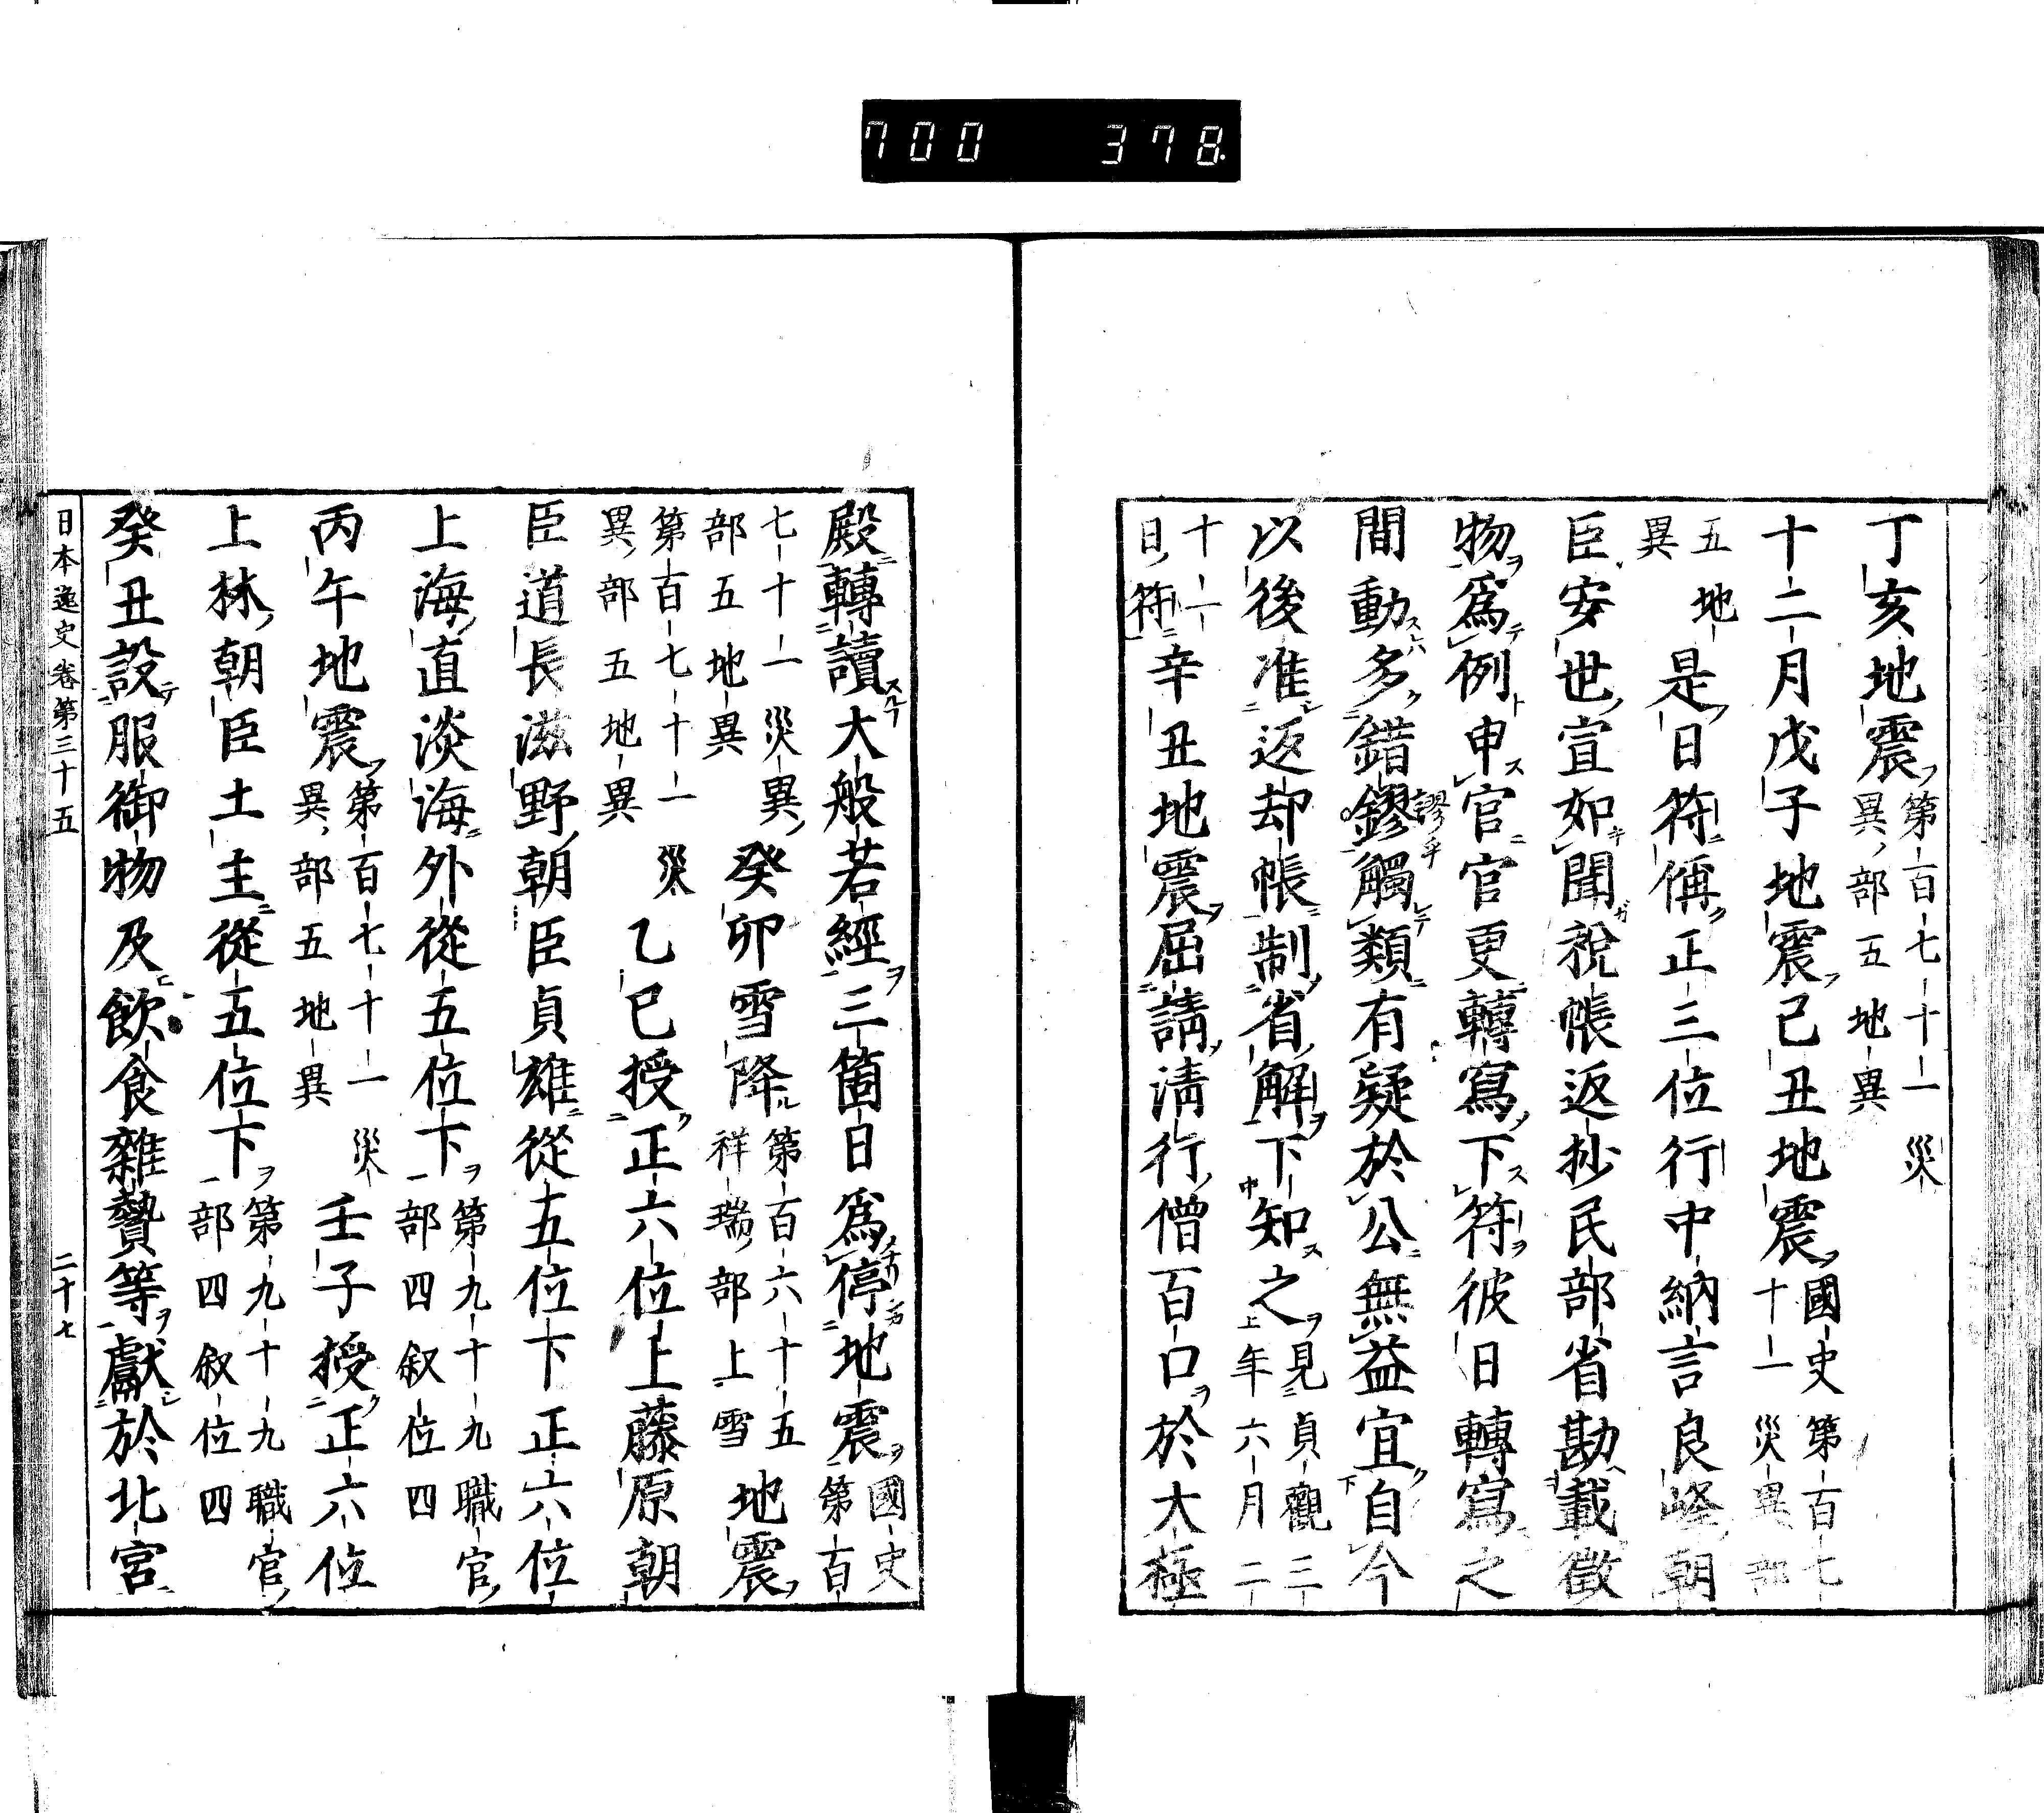 700 378
丁亥地震第百七十一災異部五地異
十二月戊子地震己丑地震國史第百七十一災異部
五地異是日符偁正三位行中納言良峰朝
臣安世宣如聞稅帳返抄民部省勘載徵
物爲例申官官更轉寫下符彼日轉寫之
間動多錯鏐謬乎觸類有疑於公無益宜自今
以後准返却帳制省解下知之見貞觀三年六月二
十一日符辛丑地震屈請淸行僧百口於大極
殿轉讀大般若經三箇日爲停地震國史第百
七十一災異部五地異癸卯雪降第百六十五祥瑞部上雪地震
第百七十一災異部五地異乙巳授正六位上藤原朝
臣道長滋野朝臣貞雄從五位下正六位
上海直淡海外從五位下第九十九職官部四叙位四
丙午地震第百七十一災異部五地異壬子授正六位
上林朝臣土主從五位下第九十九職官部四叙位四
癸丑設服御物及飮食雜贄等獻於北宮
日本逸史卷第三十五 二十七